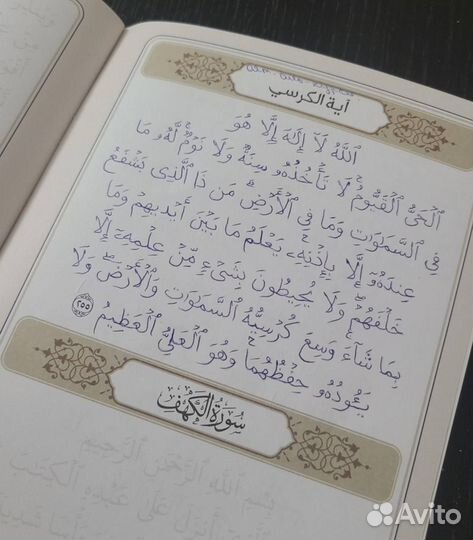 آية الكرسي
ٱللَّهُ لَآ إِلَٰهَ إِلَّا هُوَ
ٱلۡحَيُّ ٱلۡقَيُّومُۚ لَا تَأۡخُذُهُۥ سِنَةٞ وَلَا نَوۡمٞۚ لَّهُۥ مَا
فِي ٱلسَّمَٰوَٰتِ وَمَا فِي ٱلۡأَرۡضِۗ مَن ذَا ٱلَّذِي يَشۡفَعُ
عِندَهُۥٓ إِلَّا بِإِذۡنِهِۦۚ يَعۡلَمُ مَا بَيۡنَ أَيۡدِيهِمۡ وَمَا
خَلۡفَهُمۡۖ وَلَا يُحِيطُونَ بِشَيۡءٖ مِّنۡ عِلۡمِهِۦٓ إِلَّا
بِمَا شَآءَۚ وَسِعَ كُرۡسِيُّهُ ٱلسَّمَٰوَٰتِ وَٱلۡأَرۡضَۖ وَلَا
يَـُٔودُهُۥ حِفۡظُهُمَاۚ وَهُوَ ٱلۡعَلِيُّ ٱلۡعَظِيمُ ٢٥٥
سُورَةُ الكَهْفِ
بِسْمِ ٱللَّهِ ٱلرَّحْمَٰنِ ٱلرَّحِيمِ
عَلَىٰ عَبۡدِهِ ٱلۡكِتَٰبَ
Avito